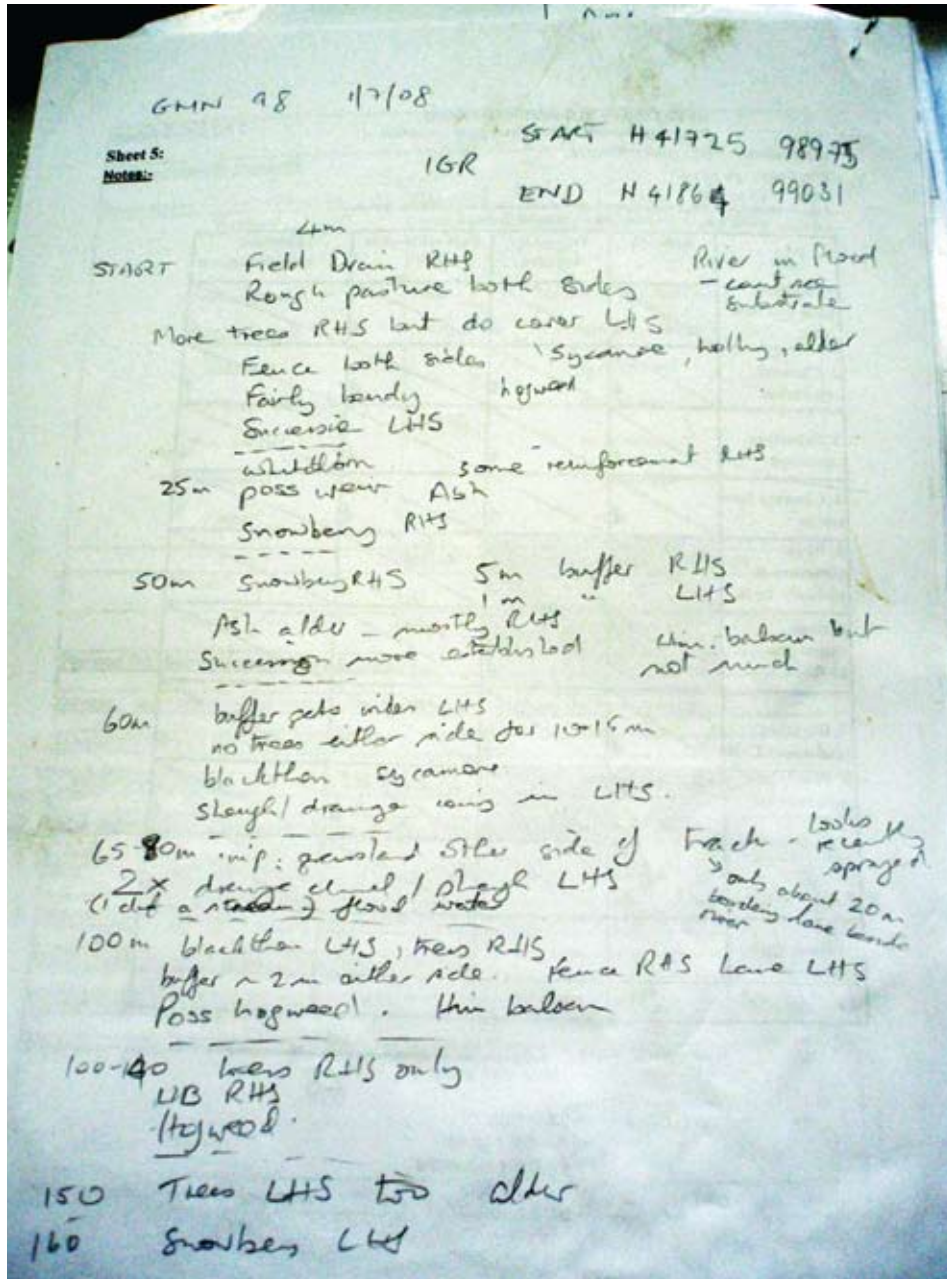 GMN 98 1/7/08
START H 41725 98975
Sheet 5:
Notes:-
IGR
END H 41864 99031
4m
START Field Drain RHS River in flood
Rough pasture both sides - cant see
substrate
More trees RHS but do cover LHS
Fence both sides Sycamore, holly, alder
Fairly bendy hogweed
Succession LHS
whitethorn some reinforcement RHS
25m poss weir Ash
Snowberry RHS
50m Snowberry RHS 5m buffer RHS
1m " LHS
Ash alder - mostly RHS
Succession more established Him. balsam but
not much
60m buffer gets wider LHS
no trees either side for 10-15m
blackthorn sycamore
Sheugh/drainage coming in LHS.
65-80m imp. grassland other side of track - looks
recently
sprayed
2x drainage channel / sheugh LHS
only about 20m
flood water
river
100m blackthorn LHS, trees RHS
buffer ~ 2m either side. Fence RHS Lane LHS
Poss hogweed. Him balsam
100-140 trees RHS only
HB RHS
Hogweed.
150 Trees LHS too alder
160 Snowberry LHS